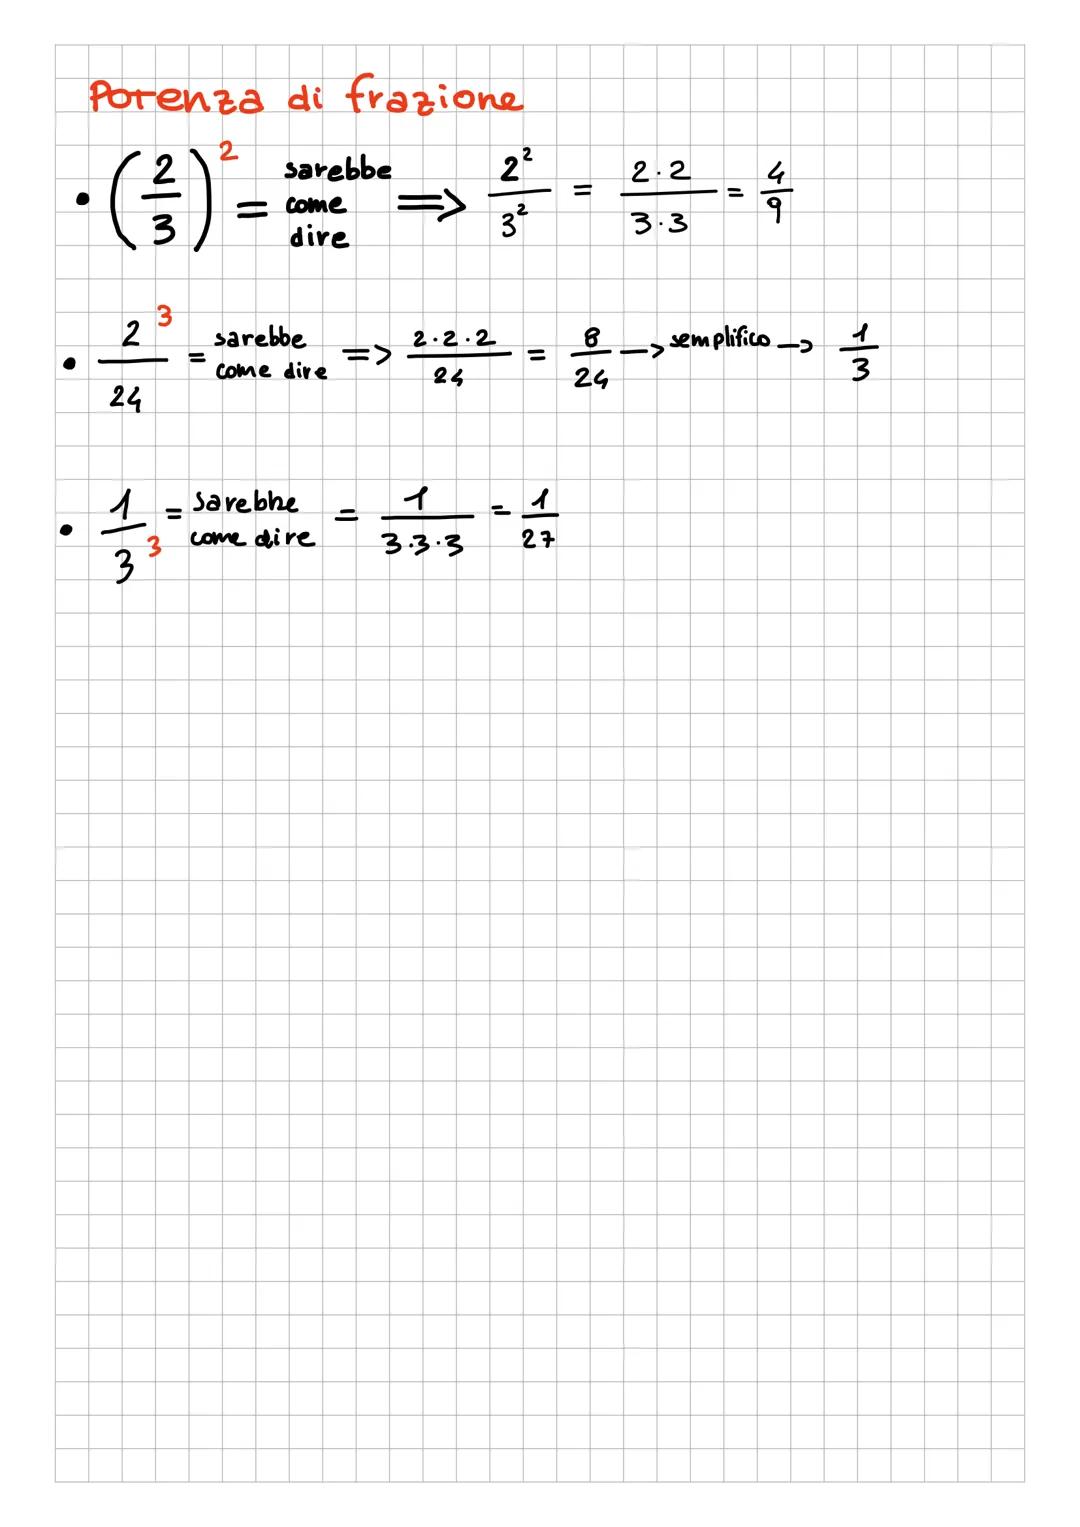 Potenza di frazione
• (2/3)² = sarebbe come dire ⟹ 2²/3² = 2·2/3·3 = 4/9
• 2³/24 = sarebbe come dire => 2·2·2/24 = 8/24 —> semplifico —> 1/3
• 1/3³ = sarebbe come dire = 1/3·3·3 = 1/27